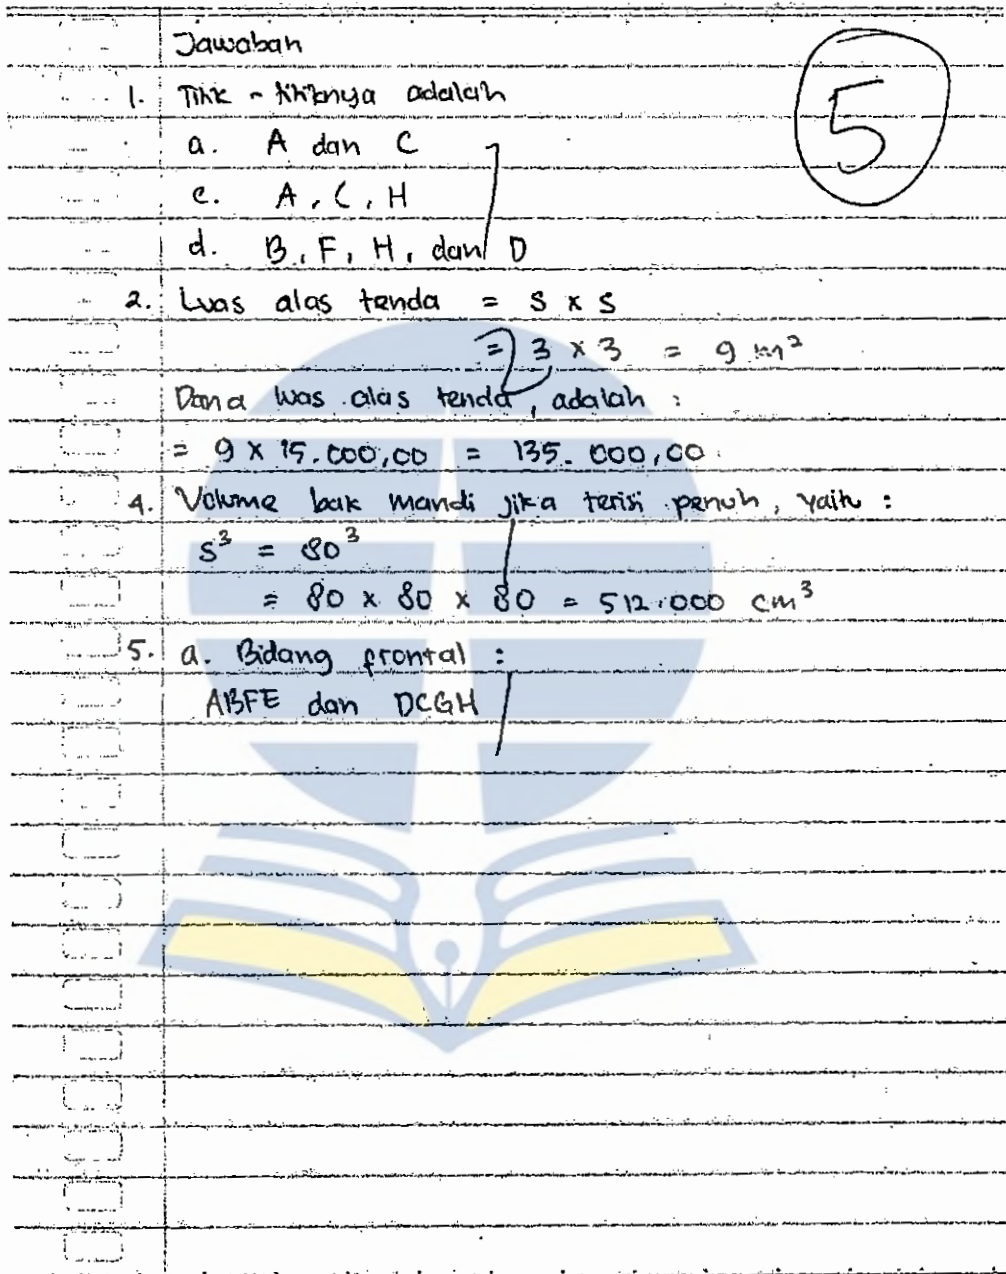 Jawaban
5
1. Titik - titiknya adalah
a. A dan C
1
c. A, C, H
d. B, F, H, dan D
2. Luas alas tenda = S x S
= 3 x 3 = 9 m²
2
Dana luas alas tenda, adalah :
= 9 x 15.000,00 = 135.000,00
4. Volume bak mandi jika terisi penuh, yaitu :
1
s³ = 80³
= 80 x 80 x 80 = 512.000 cm³
5. a. Bidang frontal :
1
ABFE dan DCGH